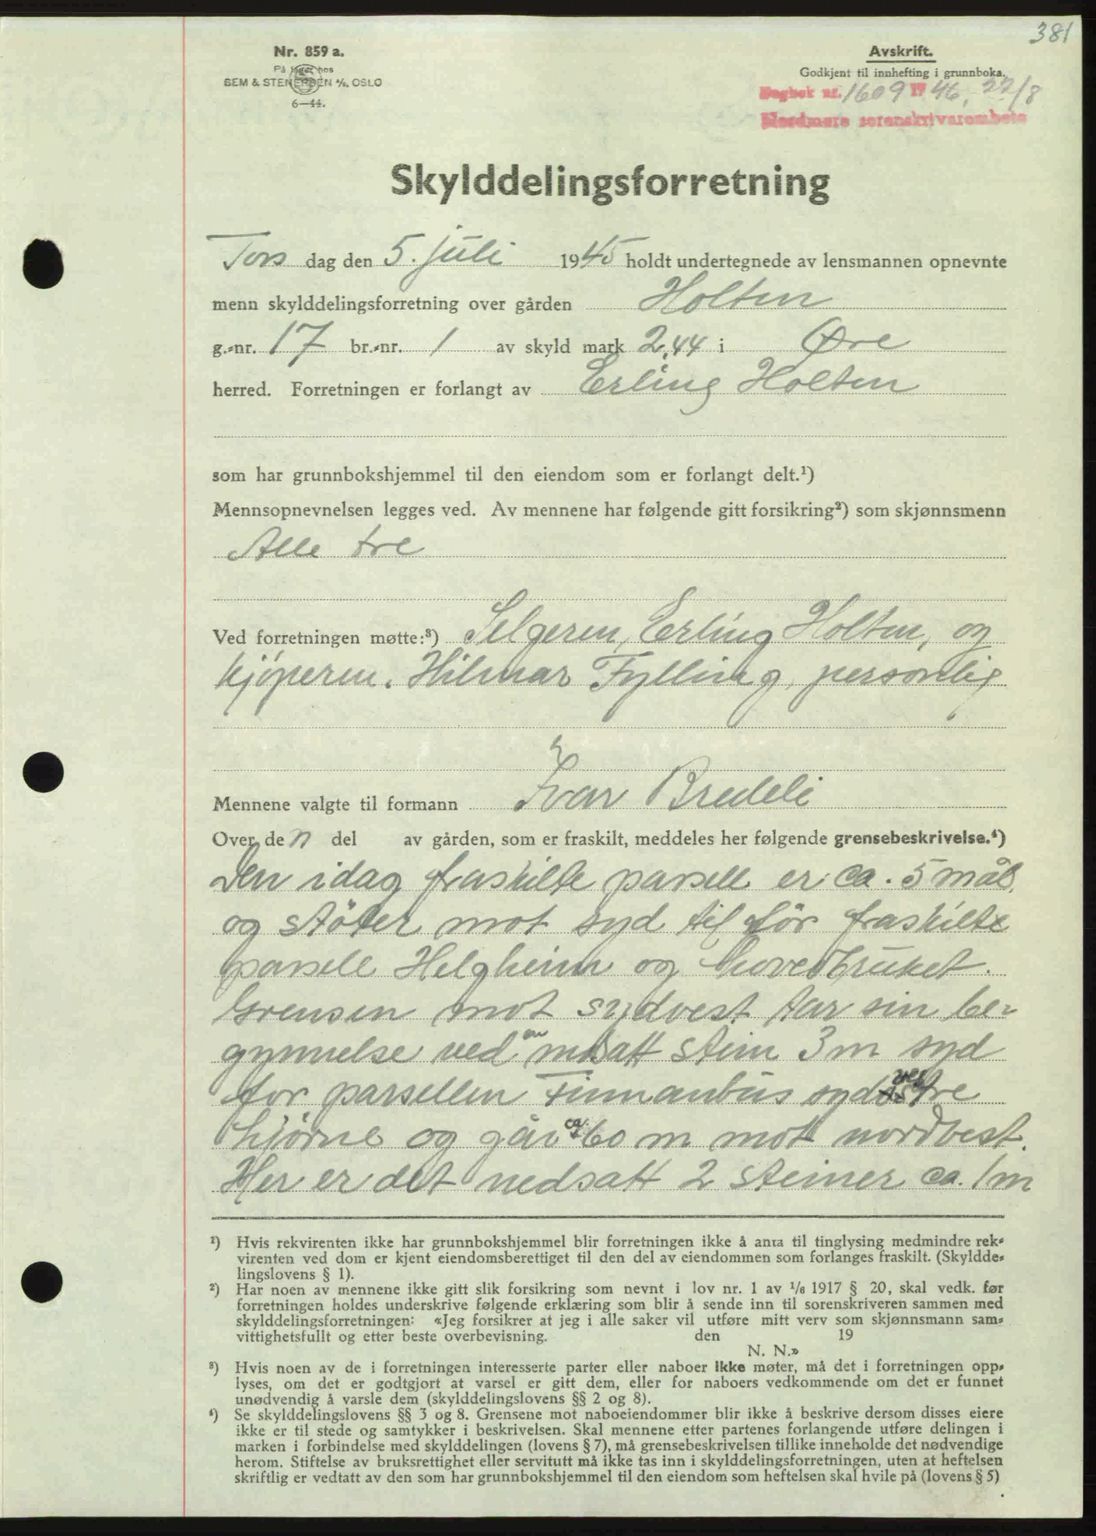 381
Nr. 859 a.
På lager hos
SEM & STENERSEN A/S, OSLO
6-44.
Avskrift.
Godkjent til innhefting i grunnboka.
Dagbok nr. 1609 1946, 22/8
Nordmøre sorenskrivarembete
Skylddelingsforretning
Tors dag den 5. juli 1945 holdt undertegnede av lensmannen opnevnte
menn skylddelingsforretning over gården Holten
g.-nr. 17 br.-nr. 1 av skyld mark 2,44 i Øre
herred. Forretningen er forlangt av Erling Holten
som har grunnbokshjemmel til den eiendom som er forlangt delt.¹)
Mennsopnevnelsen legges ved. Av mennene har følgende gitt forsikring²) som skjønnsmenn
Alle tre
Ved forretningen møtte:³) Selgeren, Erling Holten, og
kjøperen. Hilmar Fylling, personlig
Mennene valgte til formann Ivar Bredeli
Over den del av gården, som er fraskilt, meddeles her følgende grensebeskrivelse.⁴)
Den idag fraskilte parsell er ca. 5 mål,
og støter mot syd til før fraskilte
parsell Helgheim og hovedbruket.
Grensen mot sydvest tar sin be-
gynnelse ved en nedsatt stein 3 m syd
for parsellen Finnanbus sydvestre
hjørne og går ca. 60 m mot nordvest.
Her er det nedsatt 2 steiner ca. 1 m
¹) Hvis rekvirenten ikke har grunnbokshjemmel blir forretningen ikke å anta til tinglysing medmindre rek-
virenten ved dom er kjent eiendomsberettiget til den del av eiendommen som forlanges fraskilt. (Skyldde-
lingslovens § 1).
²) Har noen av mennene ikke gitt slik forsikring som nevnt i lov nr. 1 av 1/6 1917 § 20, skal vedk. før
forretningen holdes underskrive følgende erklæring som blir å sende inn til sorenskriveren sammen med
skylddelingsforretningen: «Jeg forsikrer at jeg i alle saker vil utføre mitt verv som skjønnsmann sam-
vittighetsfullt og etter beste overbevisning. den 19
N. N.»
³) Hvis noen av de i forretningen interesserte parter eller naboer ikke møter, må det i forretningen opp-
lyses, om det er godtgjort at varsel er gitt dem, eller for naboers vedkommende om det er funnet
unødvendig å varsle dem (skylddelingslovens §§ 2 og 8).
⁴) Se skylddelingslovens §§ 3 og 8. Grensene mot naboeiendommer blir ikke å beskrive dersom disses eiere
ikke er til stede og samtykker i beskrivelsen. Skal mennene etter partenes forlangende utføre delingen i
marken i forbindelse med skylddelingen (lovens § 7), må grensebeskrivelsen tillike inneholde det nødvendige
herom. Stiftelse av bruksrettighet eller servitutt må ikke tas inn i skylddelingsforretningen, uten at heftelsen
skriftlig er vedtatt av den som har grunnbokshjemmel til den eiendom som heftelsen skal hvile på (lovens § 5)